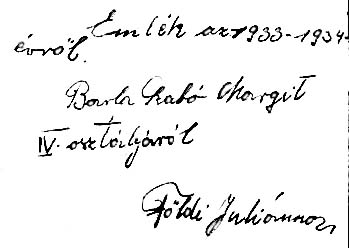 Emlék az 1933-1934
évről.
Barla Szabó Margit
IV. osztályáról
Földi Juliánna